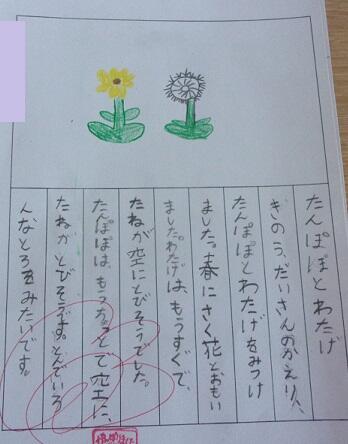 たんぽぽとわたげ
きのう、だいさんのかえりに、
たんぽぽとわたげをみつけ
ました。春にさく花とおもい
ました。わたげは、もうすぐで、
たねが空にとびそうでした。
たんぽぽは、もうちょっとで空に、
たねがとびそうです。とんでいろ
んなところをみたいです。